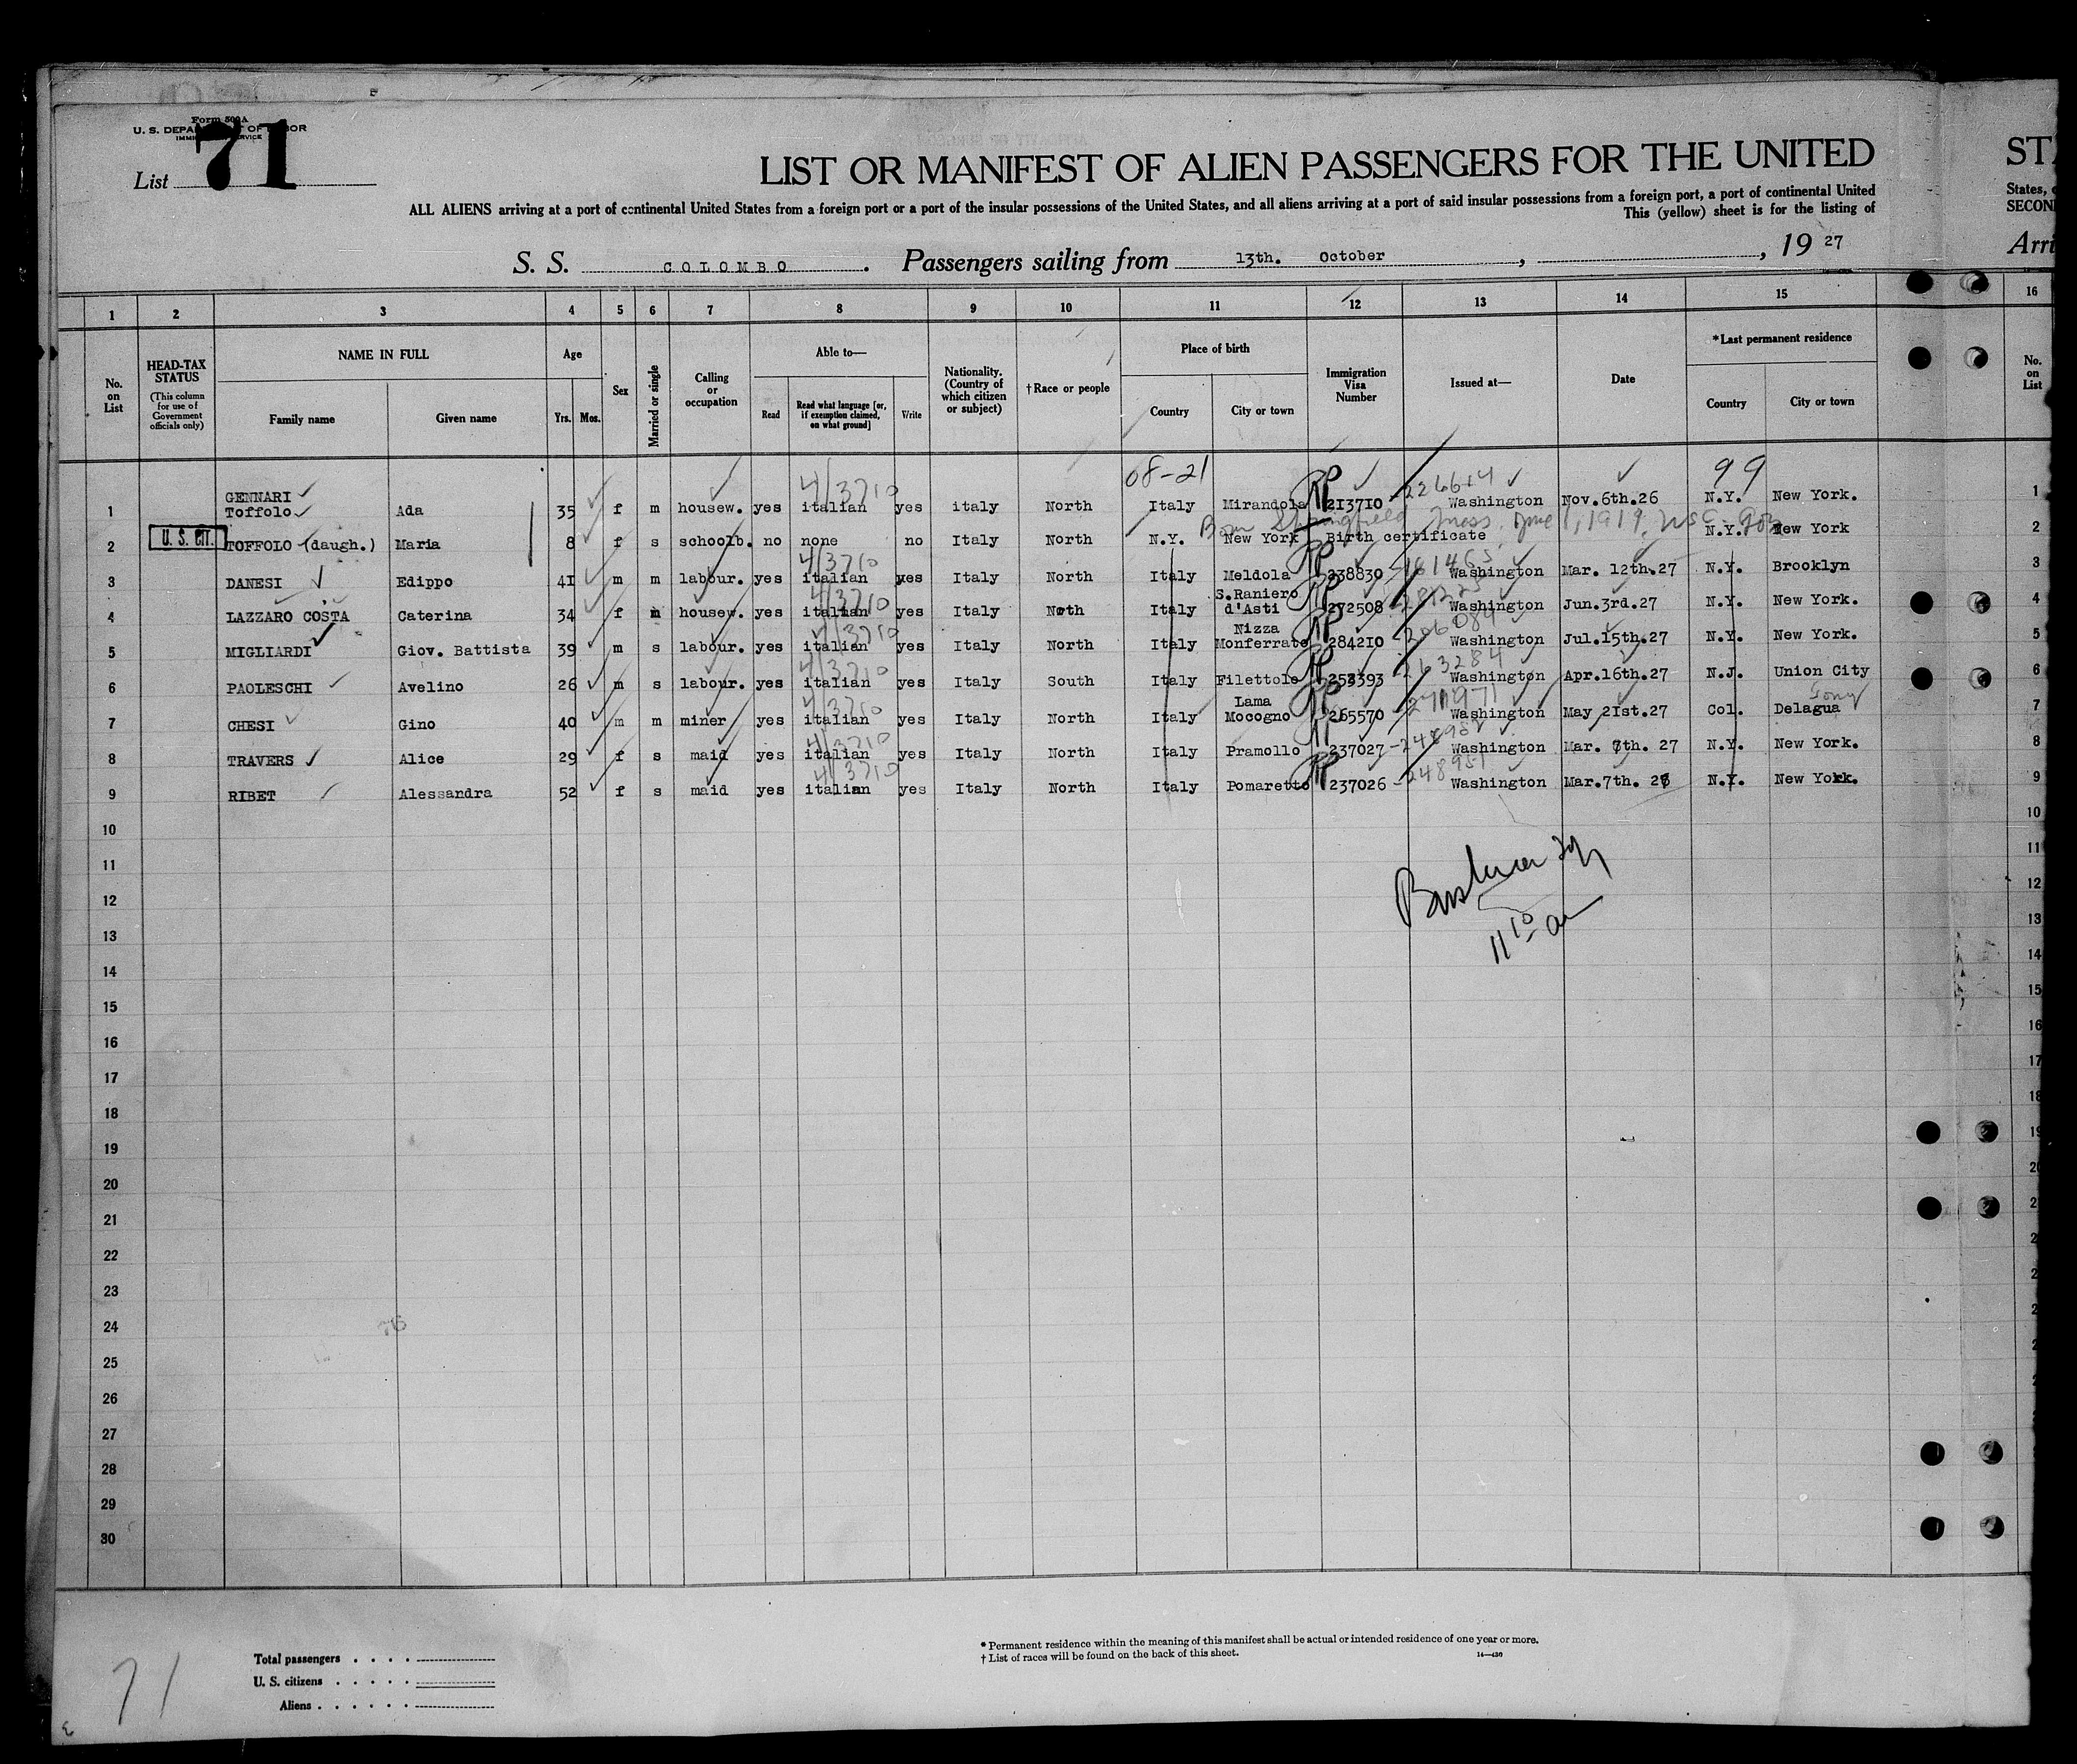 Form 500A
U. S. DEPARTMENT OF LABOR
IMMIGRATION SERVICE
List 71
LIST OR MANIFEST OF ALIEN PASSENGERS FOR THE UNITED
ALL ALIENS arriving at a port of continental United States from a foreign port or a port of the insular possessions of the United States, and all aliens arriving at a port of said insular possessions from a foreign port, a port of continental United
This (yellow) sheet is for the listing of
S. S. COLOMBO. Passengers sailing from 13th. October, , 19 27
STA
States, o
SECOND
Arri
1 2 3 4 5 6 7 8 9 10 11 12 13 14 15 16
No. on List
HEAD-TAX STATUS (This column for use of Government officials only)
NAME IN FULL
Family name
Given name
Age
Yrs. Mos.
Sex
Married or single
Calling or occupation
Able to—
Read
Read what language [or, if exemption claimed, on what ground]
Write
Nationality. (Country of which citizen or subject)
† Race or people
Place of birth
Country
City or town
Immigration Visa Number
Issued at—
Date
*Last permanent residence
Country
City or town
No. on List
08-21 99
1 GENNARI Toffolo Ada 35 f m housew. yes italian yes italy North Italy Mirandola 213710 Washington Nov.6th.26 N.Y. New York. 1
4/3710 226614
Born Springfield Mass. June 1, 1919.
2 U. S. CIT. TOFFOLO (daugh.) Maria 8 f s schoolb. no none no Italy North N.Y. New York Birth certificate N.Y. New York 2
3 DANESI Edippo 41 m m labour. yes italian yes Italy North Italy Meldola 238830 Washington Mar. 12th.27 N.Y. Brooklyn 3
4/3710 161465
4 LAZZARO COSTA Caterina 34 f m housew. yes italian yes Italy North Italy S.Raniero d'Asti 272508 Washington Jun.3rd.27 N.Y. New York. 4
4/3710
5 MIGLIARDI Giov. Battista 39 m s labour. yes italian yes Italy North Italy Nizza Monferrato 284210 Washington Jul.15th.27 N.Y. New York. 5
4/3710 206084
6 PAOLESCHI Avelino 26 m s labour. yes italian yes Italy South Italy Filettole 253393 Washington Apr.16th.27 N.J. Union City 6
4/3710 263284
7 CHESI Gino 40 m m miner yes italian yes Italy North Italy Lama Mocogno 265570 Washington May 21st.27 Col. Delagua 7
4/3710
8 TRAVERS Alice 29 f s maid yes italian yes Italy North Italy Pramollo 237027 Washington Mar. 7th. 27 N.Y. New York. 8
4/3710 248952
9 RIBET Alessandra 52 f s maid yes italian yes Italy North Italy Pomaretto 237026 Washington Mar.7th. 28 N.Y. New York. 9
4/3710 248951
10 10
11 11
12 12
13 13
14 14
15 15
16 16
17 17
18 18
19 19
20 20
21
22
23
24
25
26
27
28
29
30
11 10 am
Total passengers
U. S. citizens
Aliens
* Permanent residence within the meaning of this manifest shall be actual or intended residence of one year or more.
† List of races will be found on the back of this sheet.
14—430
71